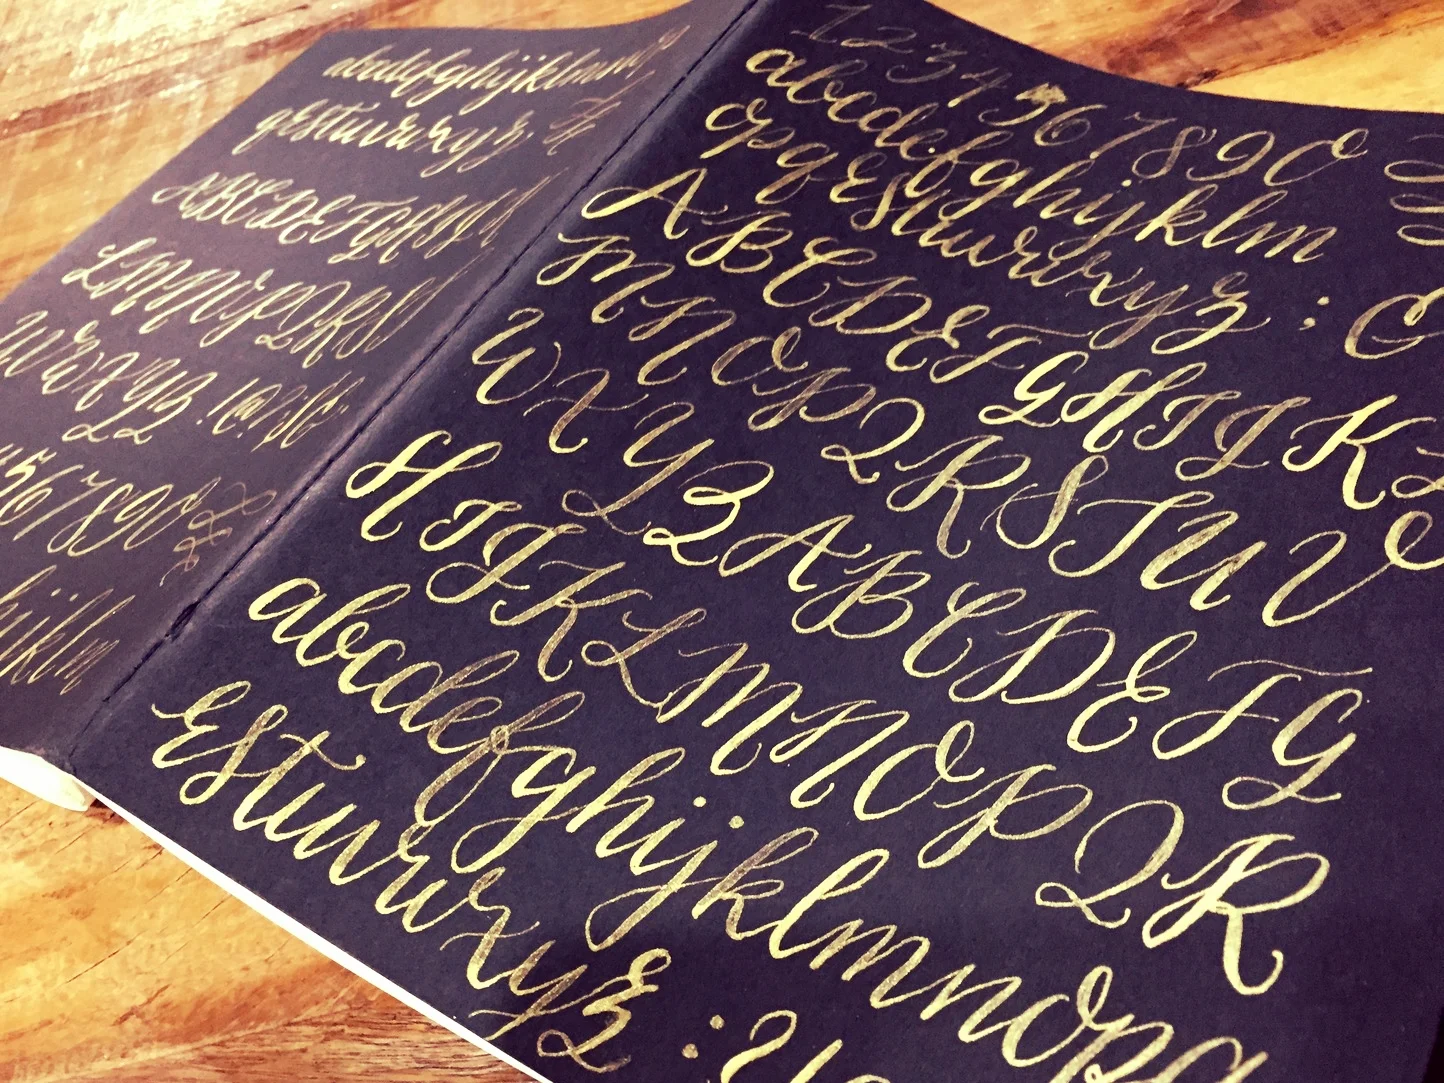 abcdefghijklmn
qrstuvwxyz.
ABCDEFGHIJ
LMNOPQRS
UVWXYZ !@
567890
hijklm
1234567890
abcdefghijklm
opqrstuvwxyz ;
ABCDEFGHIJK
MNOPQRSTUV
WXYZABCDEFG
HIJKLMNOPQR
abcdefghijklmnopq
rstuvwxyz :